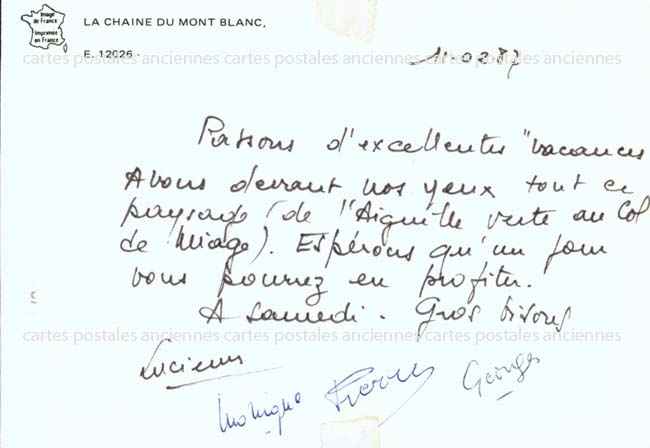 Image
de France
Imprimée
en France
LA CHAINE DU MONT BLANC,
E. 12026 -
cartes postales anciennes cartes postales anciennes cartes postales anciennes
11.02.87
Passons d'excellentes "vacances
Avons devant nos yeux tout ce
paysage (de l'Aiguille verte au Col
de Miage). Espérons qu'un jour
vous pourrez en profiter.
A samedi. Gros bisous
cartes postales anciennes cartes postales anciennes cartes postales anciennes
Lucienne
Monique Georges